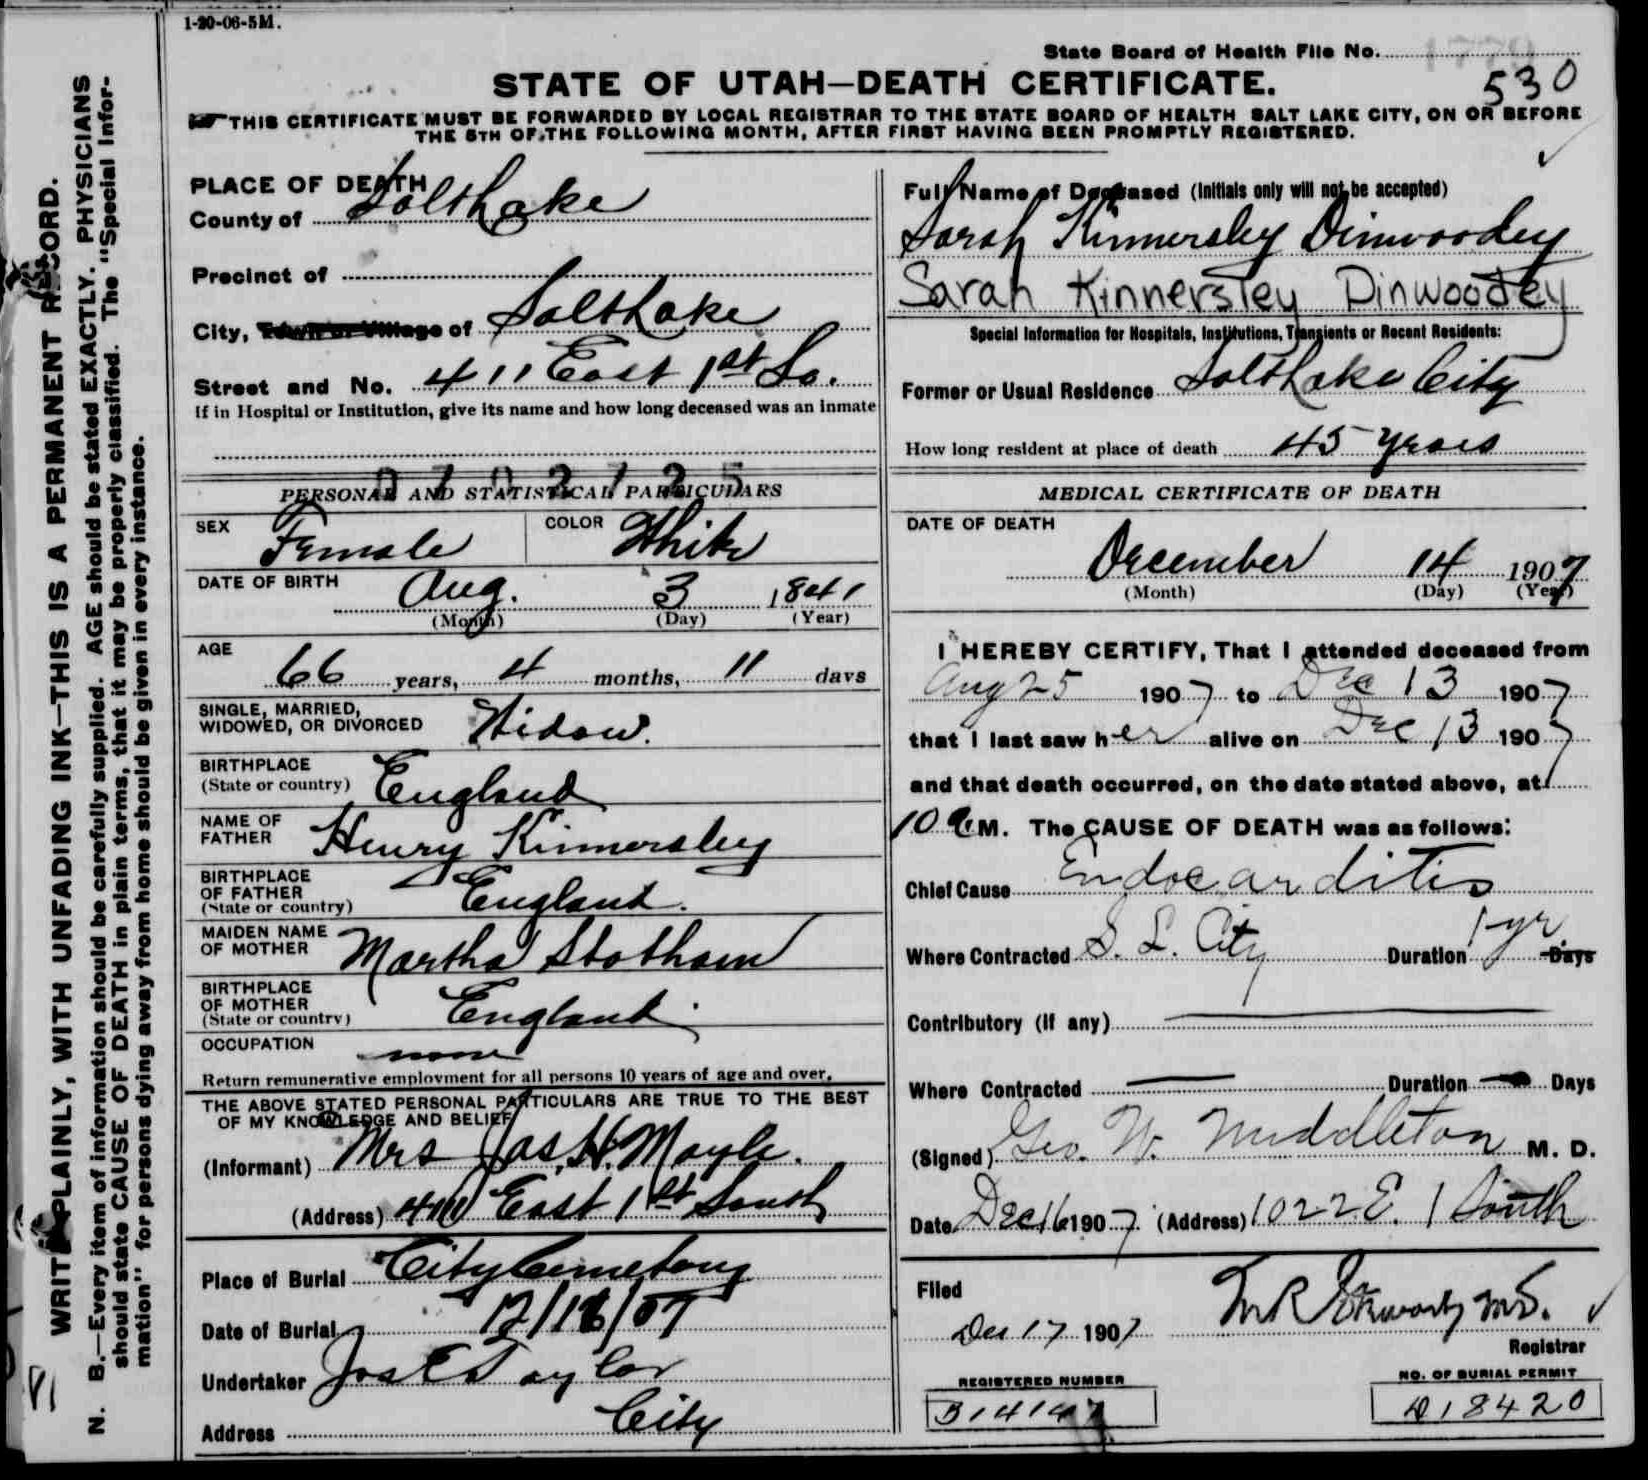 1-20-06-5M.
State Board of Health File No.
530
STATE OF UTAH—DEATH CERTIFICATE.
THIS CERTIFICATE MUST BE FORWARDED BY LOCAL REGISTRAR TO THE STATE BOARD OF HEALTH SALT LAKE CITY, ON OR BEFORE
THE 5TH OF THE FOLLOWING MONTH, AFTER FIRST HAVING BEEN PROMPTLY REGISTERED.
WRITE PLAINLY, WITH UNFADING INK—THIS IS A PERMANENT RECORD.
N. B.—Every item of information should be carefully supplied. AGE should be stated EXACTLY. PHYSICIANS
should state CAUSE OF DEATH in plain terms, that it may be properly classified. The "Special Infor-
mation" for persons dying away from home should be given in every instance.
PLACE OF DEATH
County of Salt Lake
Precinct of
City, Town or Village of Salt Lake
Street and No. 411 East 1st So.
If in Hospital or Institution, give its name and how long deceased was an inmate
0702725
PERSONAL AND STATISTICAL PARTICULARS
SEX Female COLOR White
DATE OF BIRTH Aug. 3 1841
(Month) (Day) (Year)
AGE
66 years, 4 months, 11 days
SINGLE, MARRIED,
WIDOWED, OR DIVORCED Widow.
BIRTHPLACE
(State or country) England
NAME OF
FATHER Henry Kinnersley
BIRTHPLACE
OF FATHER
(State or country) England.
MAIDEN NAME
OF MOTHER Martha Stotham
BIRTHPLACE
OF MOTHER
(State or country) England.
OCCUPATION none
Return remunerative employment for all persons 10 years of age and over.
THE ABOVE STATED PERSONAL PARTICULARS ARE TRUE TO THE BEST
OF MY KNOWLEDGE AND BELIEF
(Informant) Mrs Jas. H. Moyle.
(Address) 411 East 1st South
Place of Burial City Cemetery
Date of Burial 12/16/07
Undertaker Jos E Taylor
Address City
Full Name of Deceased (Initials only will not be accepted)
Sarah Kinnersley Dinwoodey
Sarah Kinnersley Dinwoodey
Special Information for Hospitals, Institutions, Transients or Recent Residents:
Former or Usual Residence Salt Lake City
How long resident at place of death 45 years
MEDICAL CERTIFICATE OF DEATH
DATE OF DEATH
December 14 1907
(Month) (Day) (Year)
I HEREBY CERTIFY, That I attended deceased from
Aug 25 1907 to Dec 13 1907
that I last saw her alive on Dec 13 1907
and that death occurred, on the date stated above, at
10 a M. The CAUSE OF DEATH was as follows:
Chief Cause Endocarditis
Where Contracted S. L. City Duration 1 yr. Days
Contributory (if any)
Where Contracted Duration Days
(Signed) Geo. W. Middleton M. D.
Date Dec 16 1907. (Address) 1022 E. 1 South
Filed
Dec 17 1907
Registrar
REGISTERED NUMBER
NO. OF BURIAL PERMIT
18420